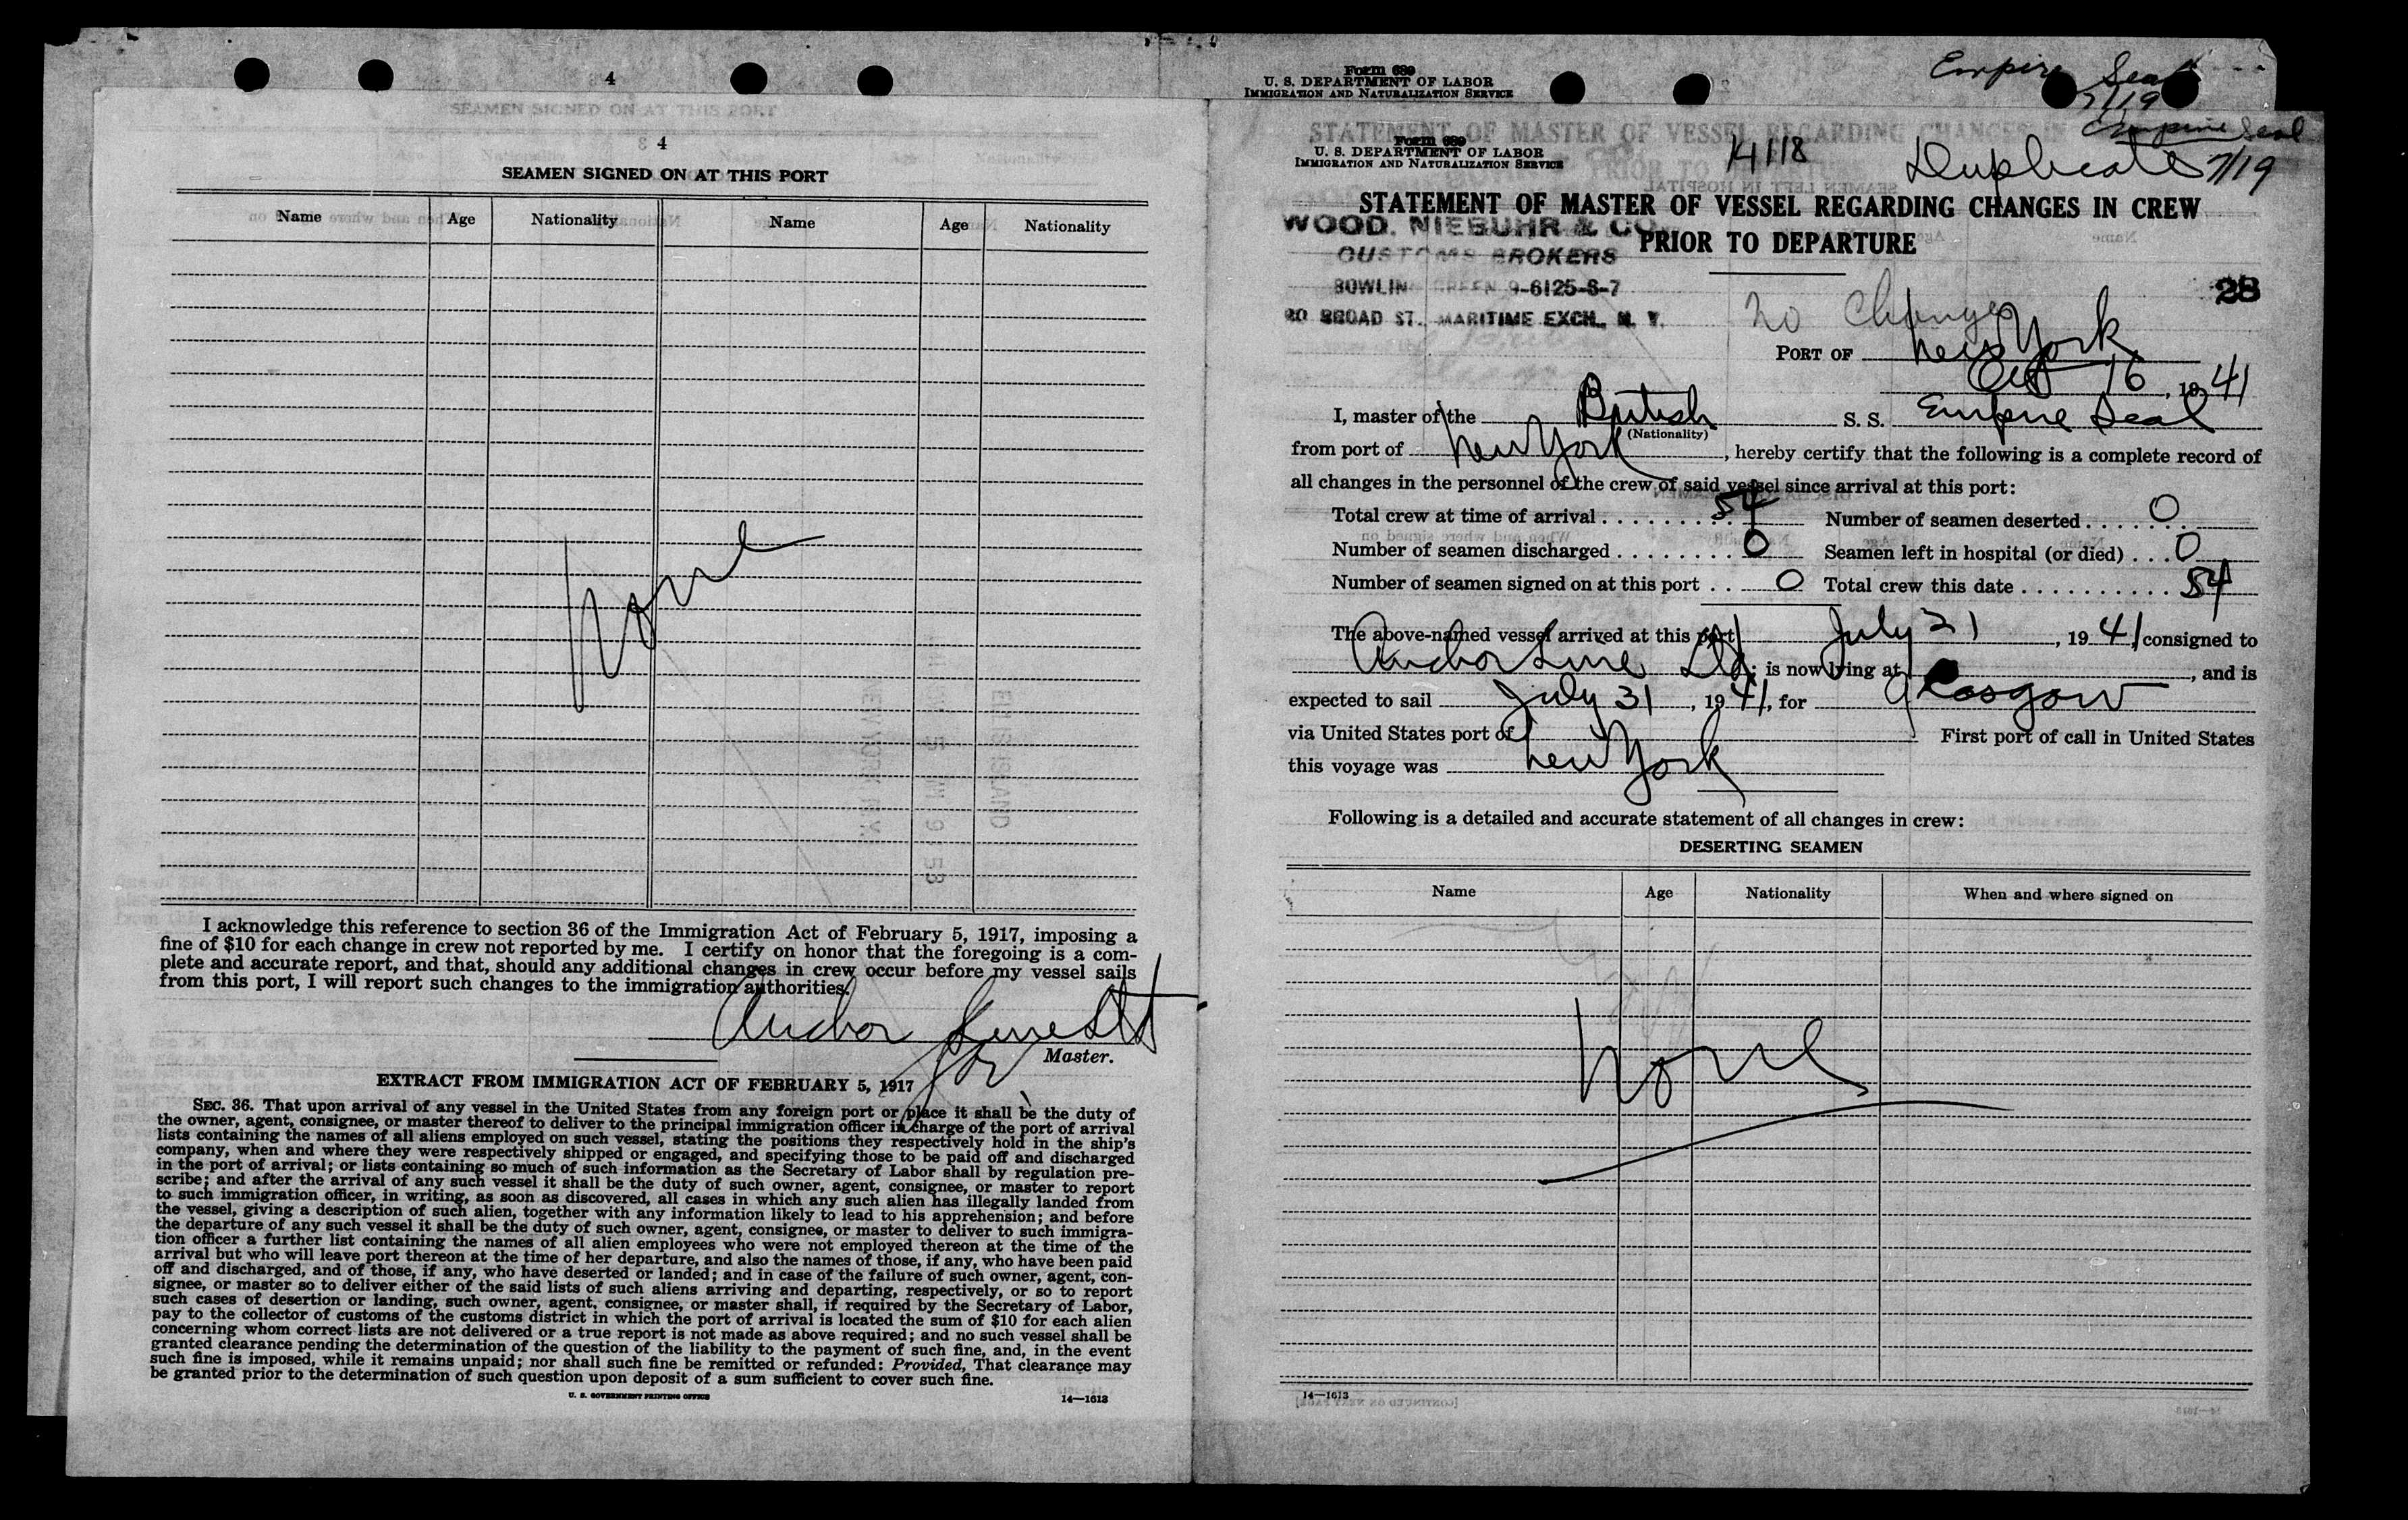 4
4
SEAMEN SIGNED ON AT THIS PORT
Name Age Nationality Name Age Nationality
None
I acknowledge this reference to section 36 of the Immigration Act of February 5, 1917, imposing a
fine of $10 for each change in crew not reported by me. I certify on honor that the foregoing is a com-
plete and accurate report, and that, should any additional changes in crew occur before my vessel sails
from this port, I will report such changes to the immigration authorities.
Anchor Line Ltd
Master.
EXTRACT FROM IMMIGRATION ACT OF FEBRUARY 5, 1917
SEC. 36. That upon arrival of any vessel in the United States from any foreign port or place it shall be the duty of
the owner, agent, consignee, or master thereof to deliver to the principal immigration officer in charge of the port of arrival
lists containing the names of all aliens employed on such vessel, stating the positions they respectively hold in the ship's
company, when and where they were respectively shipped or engaged, and specifying those to be paid off and discharged
in the port of arrival; or lists containing so much of such information as the Secretary of Labor shall by regulation pre-
scribe; and after the arrival of any such vessel it shall be the duty of such owner, agent, consignee, or master to report
to such immigration officer, in writing, as soon as discovered, all cases in which any such alien has illegally landed from
the vessel, giving a description of such alien, together with any information likely to lead to his apprehension; and before
the departure of any such vessel it shall be the duty of such owner, agent, consignee, or master to deliver to such immigra-
tion officer a further list containing the names of all alien employees who were not employed thereon at the time of the
arrival but who will leave port thereon at the time of her departure, and also the names of those, if any, who have been paid
off and discharged, and of those, if any, who have deserted or landed; and in case of the failure of such owner, agent, con-
signee, or master so to deliver either of the said lists of such aliens arriving and departing, respectively, or so to report
such cases of desertion or landing, such owner, agent, consignee, or master shall, if required by the Secretary of Labor,
pay to the collector of customs of the customs district in which the port of arrival is located the sum of $10 for each alien
concerning whom correct lists are not delivered or a true report is not made as above required; and no such vessel shall be
granted clearance pending the determination of the question of the liability to the payment of such fine, and, in the event
such fine is imposed, while it remains unpaid; nor shall such fine be remitted or refunded: Provided, That clearance may
be granted prior to the determination of such question upon deposit of a sum sufficient to cover such fine.
U. S. GOVERNMENT PRINTING OFFICE 14—1613
Form 689
U. S. DEPARTMENT OF LABOR
IMMIGRATION AND NATURALIZATION SERVICE
Empire Seal
7/19
Empire Seal
7/19
Form 689
U. S. DEPARTMENT OF LABOR
IMMIGRATION AND NATURALIZATION SERVICE
14118
Duplicate
STATEMENT OF MASTER OF VESSEL REGARDING CHANGES IN CREW
PRIOR TO DEPARTURE
WOOD, NIEBUHR & CO.
CUSTOMS BROKERS
BOWLING GREEN 9-6125-6-7
80 BROAD ST., MARITIME EXCH., N. Y.
28
No Change
PORT OF New York
Oct 16, 1941
I, master of the British S. S. Empire Seal
(Nationality)
from port of New York, hereby certify that the following is a complete record of
all changes in the personnel of the crew of said vessel since arrival at this port:
Total crew at time of arrival 54 Number of seamen deserted 0
Number of seamen discharged 0 Seamen left in hospital (or died) 0
Number of seamen signed on at this port 0 Total crew this date 54
The above-named vessel arrived at this port July 21, 1941, consigned to
Anchor Line Ltd; is now lying at , and is
expected to sail July 31, 1941, for Glasgow
via United States port of First port of call in United States
this voyage was New York
Following is a detailed and accurate statement of all changes in crew:
DESERTING SEAMEN
Name Age Nationality When and where signed on
None
14—1613